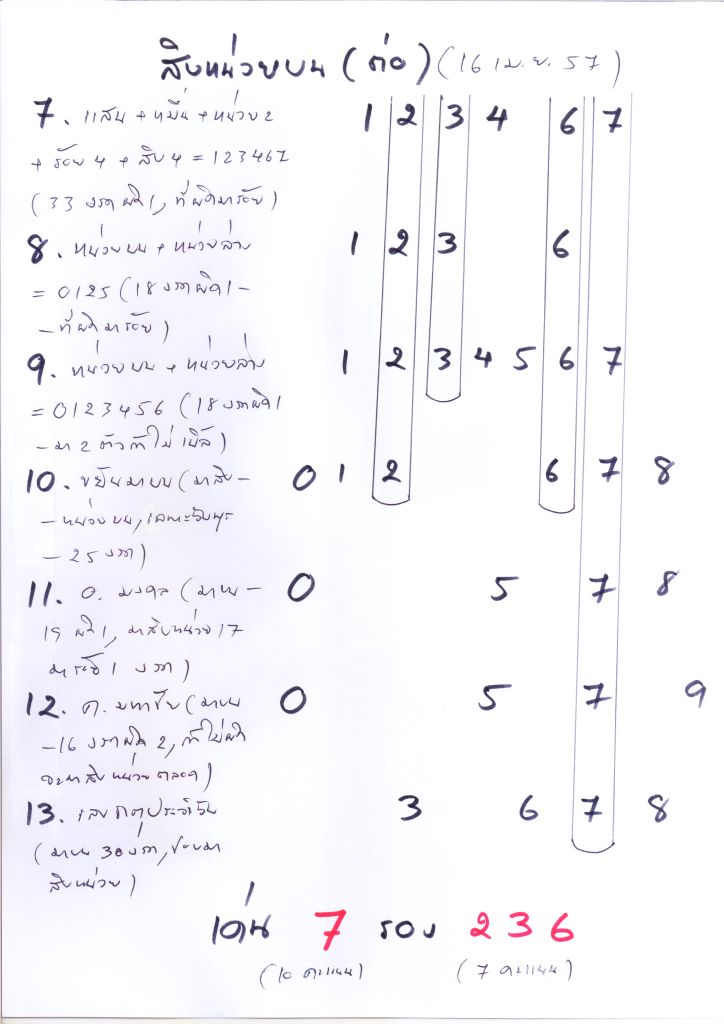 สิบหน่วยบน (ต่อ) (16 เม.ย. 57)
7. แสน + หมื่น + หน่วย 2 1 2 3 4 6 7
+ ร้อย 4 + สิบ 4 = 123467
(33 งวดผิด 1, ที่ผิดมาร้อย)
8. หน่วยบน + หน่วยล่าง 1 2 3 6
= 0125 (18 งวดผิด 1 -
- ที่ผิดมาร้อย)
9. หน่วยบน + หน่วยล่าง 1 2 3 4 5 6 7
= 0123456 (18 งวดผิด 1
- มา 2 ตัวถ้าไม่เบิ้ล)
10. ขยันมาบน (มาสิบ - 0 1 2 6 7 8
- หน่วยบน, เฉพาะวันพุธ
- 25 งวด)
11. อ. มงคล (มาบน - 0 5 7 8
19 ผิด 1, มาสิบหน่วย 17
มาร้อย 1 งวด)
12. ค. มหาชัย (มาบน 0 5 7 9
- 16 งวดผิด 2, ถ้าไม่ผิด
จะมาสิบหน่วยตลอด)
13. เลขธาตุประจำวัน 3 6 7 8
(มาบน 30 งวด, ชอบมา
สิบหน่วย)
เด่น 7 รอง 2 3 6
(10 คะแนน) (7 คะแนน)